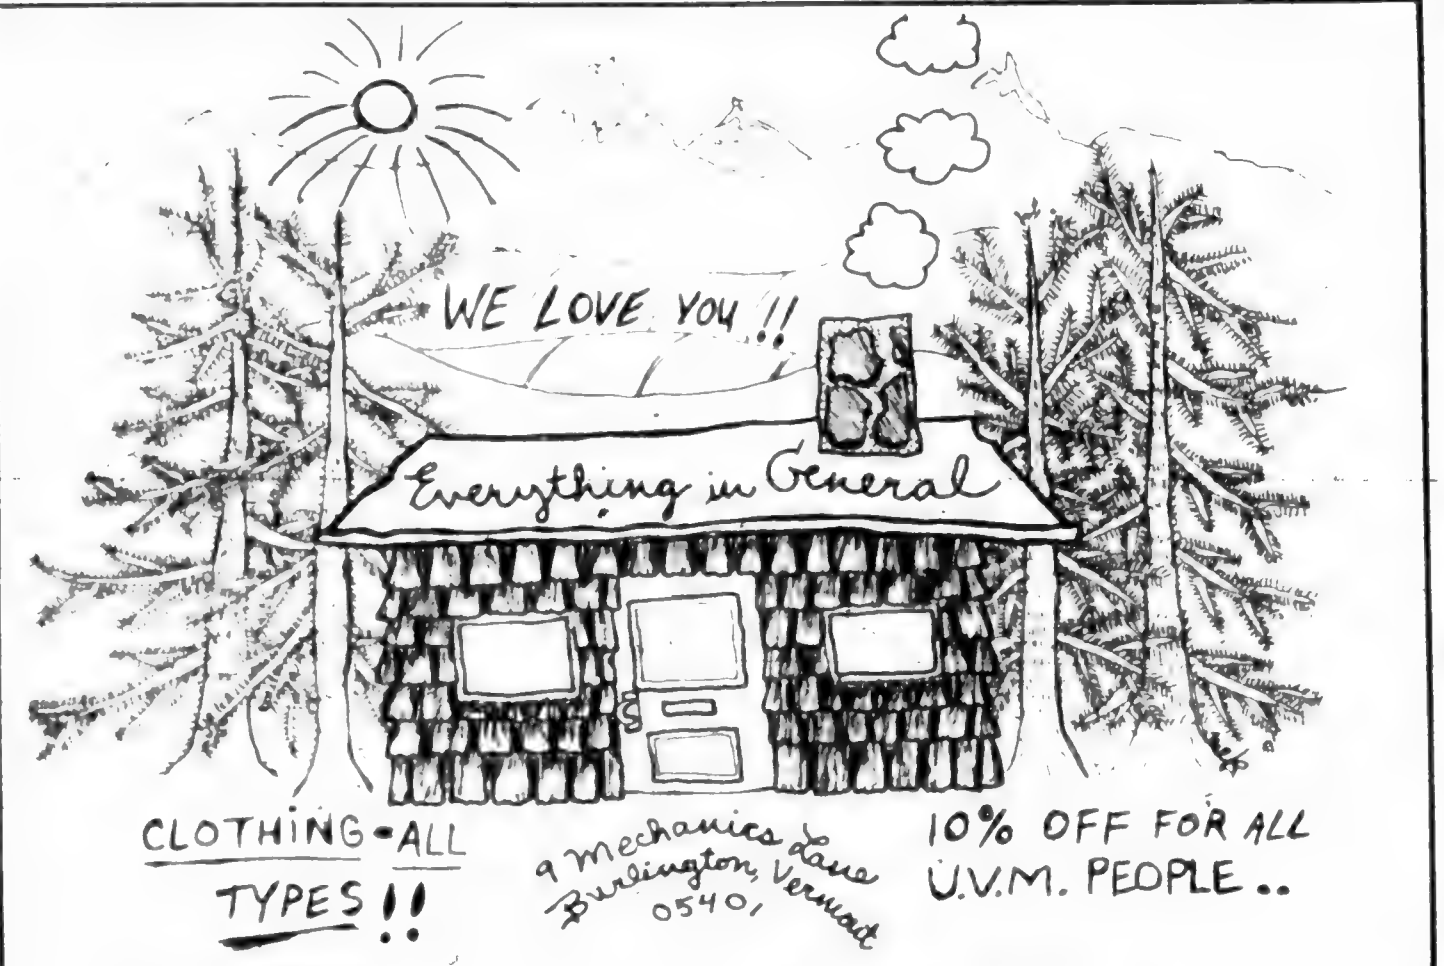 WE LOVE YOU !!
Everything in General
CLOTHING-ALL
TYPES !!
9 Mechanics Lane
Burlington, Vermont
05401
10% OFF FOR ALL
U.V.M. PEOPLE..